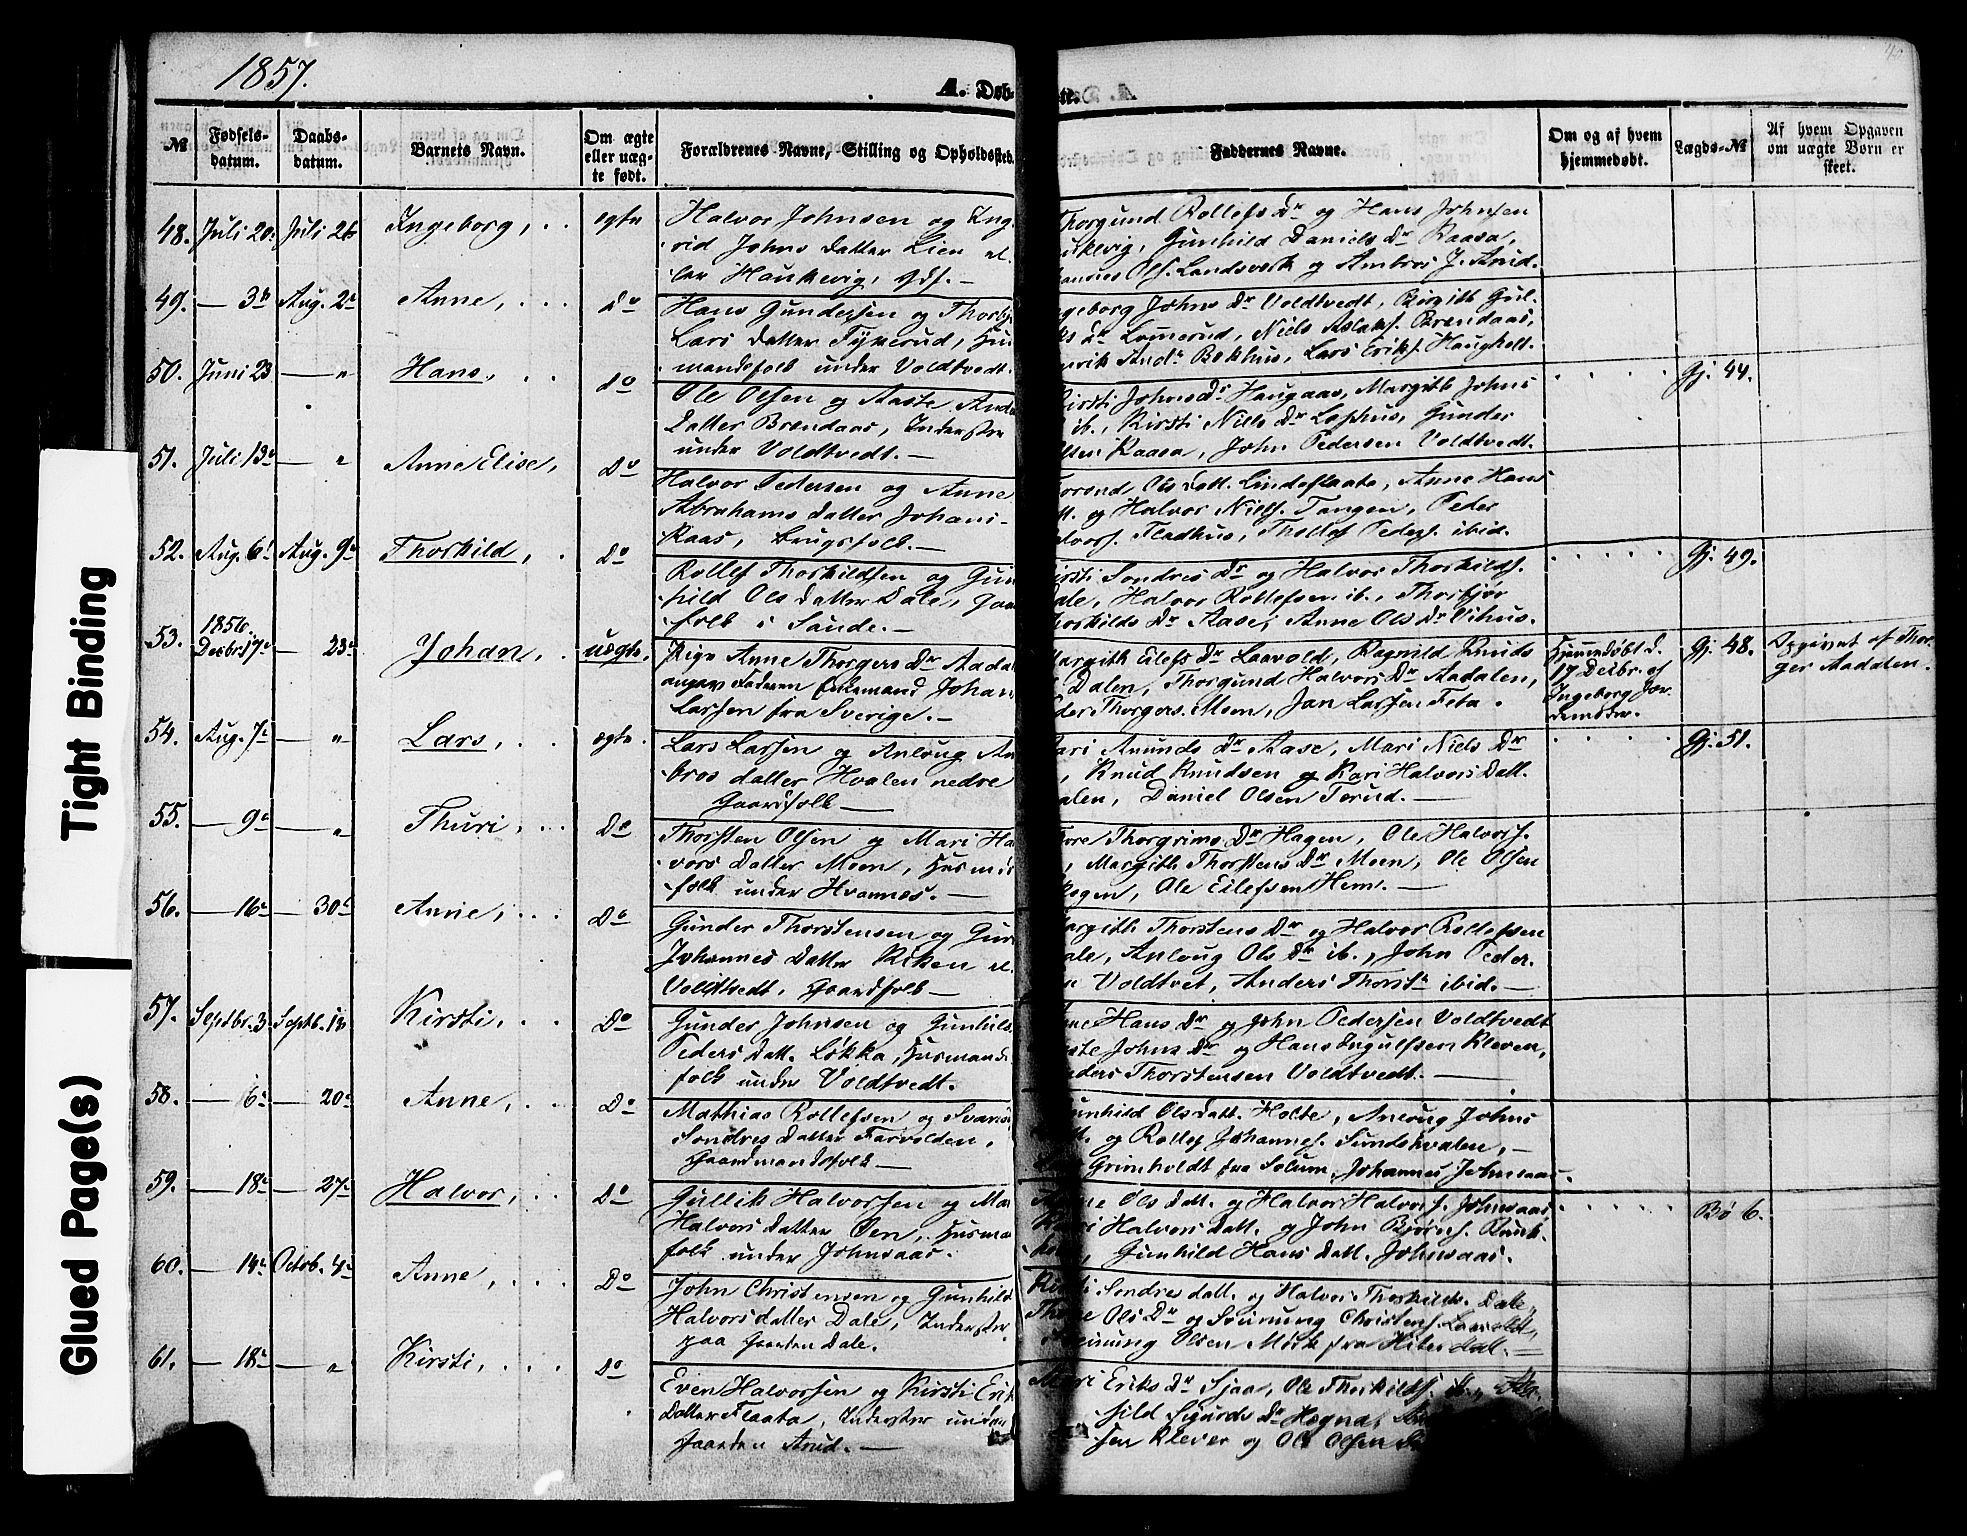 1857.
A. Døb-
te.
№
Fødsels-
datum.
Daabs-
datum.
Barnets Navn.
Om ægte
eller uæg-
te født.
Forældrenes Navne, Stilling og Opholdssted.
Faddernes Navne.
Om og af hvem
hjemmedøbt.
Lægds-№
Af hvem Opgaven
om uægte Børn er
skeet.
48. Juli 20. Juli 26 Ingeborg, ægte
Halvor Johnsen og Ing-
rid Johns datter Lien el-
ler Haukevig, Gdf.
Thorgund Rollefs Dr og Hans Johnsen
Gunhild Daniels Dr Raasa,
Ols. Landsverk og Ambros J. Arud.
49. — 3 Aug. 2 Anne, Do
Hans Gundersen og
Lars datter Tykerud, Hus-
mandsfolk under Voldtvedt.
Ingeborg Johns Dr Voldtvedt, Birgith Gul-
Dr Lønnerud, Niels Aslaks. Brendaas,
And. Bekhus, Lars Eriks. Haugholt.
50. Juni 23 — " Hans, Do
Ole Olsen og Aaste And
Datter Brendaas, Inderster
under Voldtvedt. —
Kirsti Johns Dr Haugaas, Margith Johns
ib., Kirsti Niels Dr Løshus, Gunder
Olsen Raasa, John Pedersen Voldtvedt.
Gj. 44.
51. Juli 13 — " Anne Elise, Do
Halvor Pedersen og Anne
Abrahams datter Johans-
Raas, Brugsfolk. —
Torond Ols Datt. Lindeflaate, Anne Hans
og Halvor Niels. Tangen, Peder
Halvors. Fladhus, Thollef Peders. ibid.
52. Aug. 6 Aug. 9 Thorkild, Do
Rollef Thorkildsen og Gun
hild Ols datter Dale, Gaard
folk i Saude. —
Kirsti Sondres Dr og Halvor Thorkilds.
Dale, Halvor Rollefsen ib., Thorbjør
Thorkilds Dr Aase, Anne Ols Dr Vihus.
Gj. 49.
53. 1856. Decbr. 17 — 23 Johan, uægte,
Pige Anne Thorgers Dr Aadal
angav Faderen Enkemand Johan
Larssen fra Sverige. —
Margith Eilefs Dr Laavold, Ragnild Knuds
Dalen, Thorgund Halvors Dr Aadalen,
Peder Thorgers. Moen, Jan Larsen Teta.
Hjemmedøbt d.
17 Decbr. af
Ingeborg Jor-
demoder.
Gj. 48.
Opgivet af Thor-
ger Aadalen.
54. Aug. 7 — " Lars, ægte.
Lars Larsen og Anlaug Am
bros datter Hvalen nedre
Gaardfolk —
Kari Anunds Dr Aase, Mari Niels Dr
Knud Knudsen og Kari Halvors Datt.
Daniel Olsen Torud. —
Gj. 51.
55. — 9 — " Thuri, Do
Thorsten Olsen og Mari Hal
vors Datter Moen, Husmds
folk under Hvannes. —
Tore Thorgrims Dr Hagen, Ole Halvors.
Margith Thorstens Dr Moen, Ole Olsen
Ole Eilefsen Hem. —
56. — 16 — 30 Anne, Do
Gunder Thorstensen og Guro
Johannes Datter Riken el.
Voldtvedt, Gaardfolk —
Margith Thorstens Dr og Halvor Rollefsen
Dale, Anlaug Ols Dr ib., John Peder-
Voldtvet, Anders Thorst. ibid. —
57. Septbr. 3 Septb. 13 Kirsti, Do
Gunder Johnsen og Gunhild
Peders Datt. Løkka, Husmands
folk under Voldtvedt.
Hans Dr og John Pedersen Voldtvedt
Johns Dr og Hans Ingulfsen Kleven,
Anders Thorstensen Voldtvedt. —
58. — 6 — 20 Anne, Do
Mathias Rollefsen og
Sondres datter Farvolden,
Gaardmandsfolk —
Gunhild Ols Datt. Holte, Anlaug Johns
og Rollef Johannes. Sundskvalen, —
Grimholdt fra Solum, Johannes Johnsaas.
59. — 18 — 27 Halvor, Do
Gullik Halvorsen og
Halvors datter Øen, Husma
folk under Johnsaas.
Ols Datt. og Halvor Halvors. Johnsaas,
Kari Halvors Datt. og John Bjørns.
Gunhild Hans Datt. Johnsaas.
Bø 6.
60. — 14 Octob. 4 Anne, Do
John Christensen og Gunhild
Halvors datter Dale, Inderster
paa Gaarden Dale.
Kirsti Sondres datt. og Halvor Thorkilds. Dale,
Ols Dr og Svinung Christens.
Olsen Moik fra Hiterdal. —
61. — 18 — " Kirsti, Do
Even Halvorsen og Kirsti Erik
Datter Flaata, Inderster under
Gaarden Arud. —
Mari Eriks Dr Sjaa, Ole Thorkilds.
hild Sigurds Dr Hogna,
sen Klever og Ole Olsen
Tight Binding
Glued Page(s)